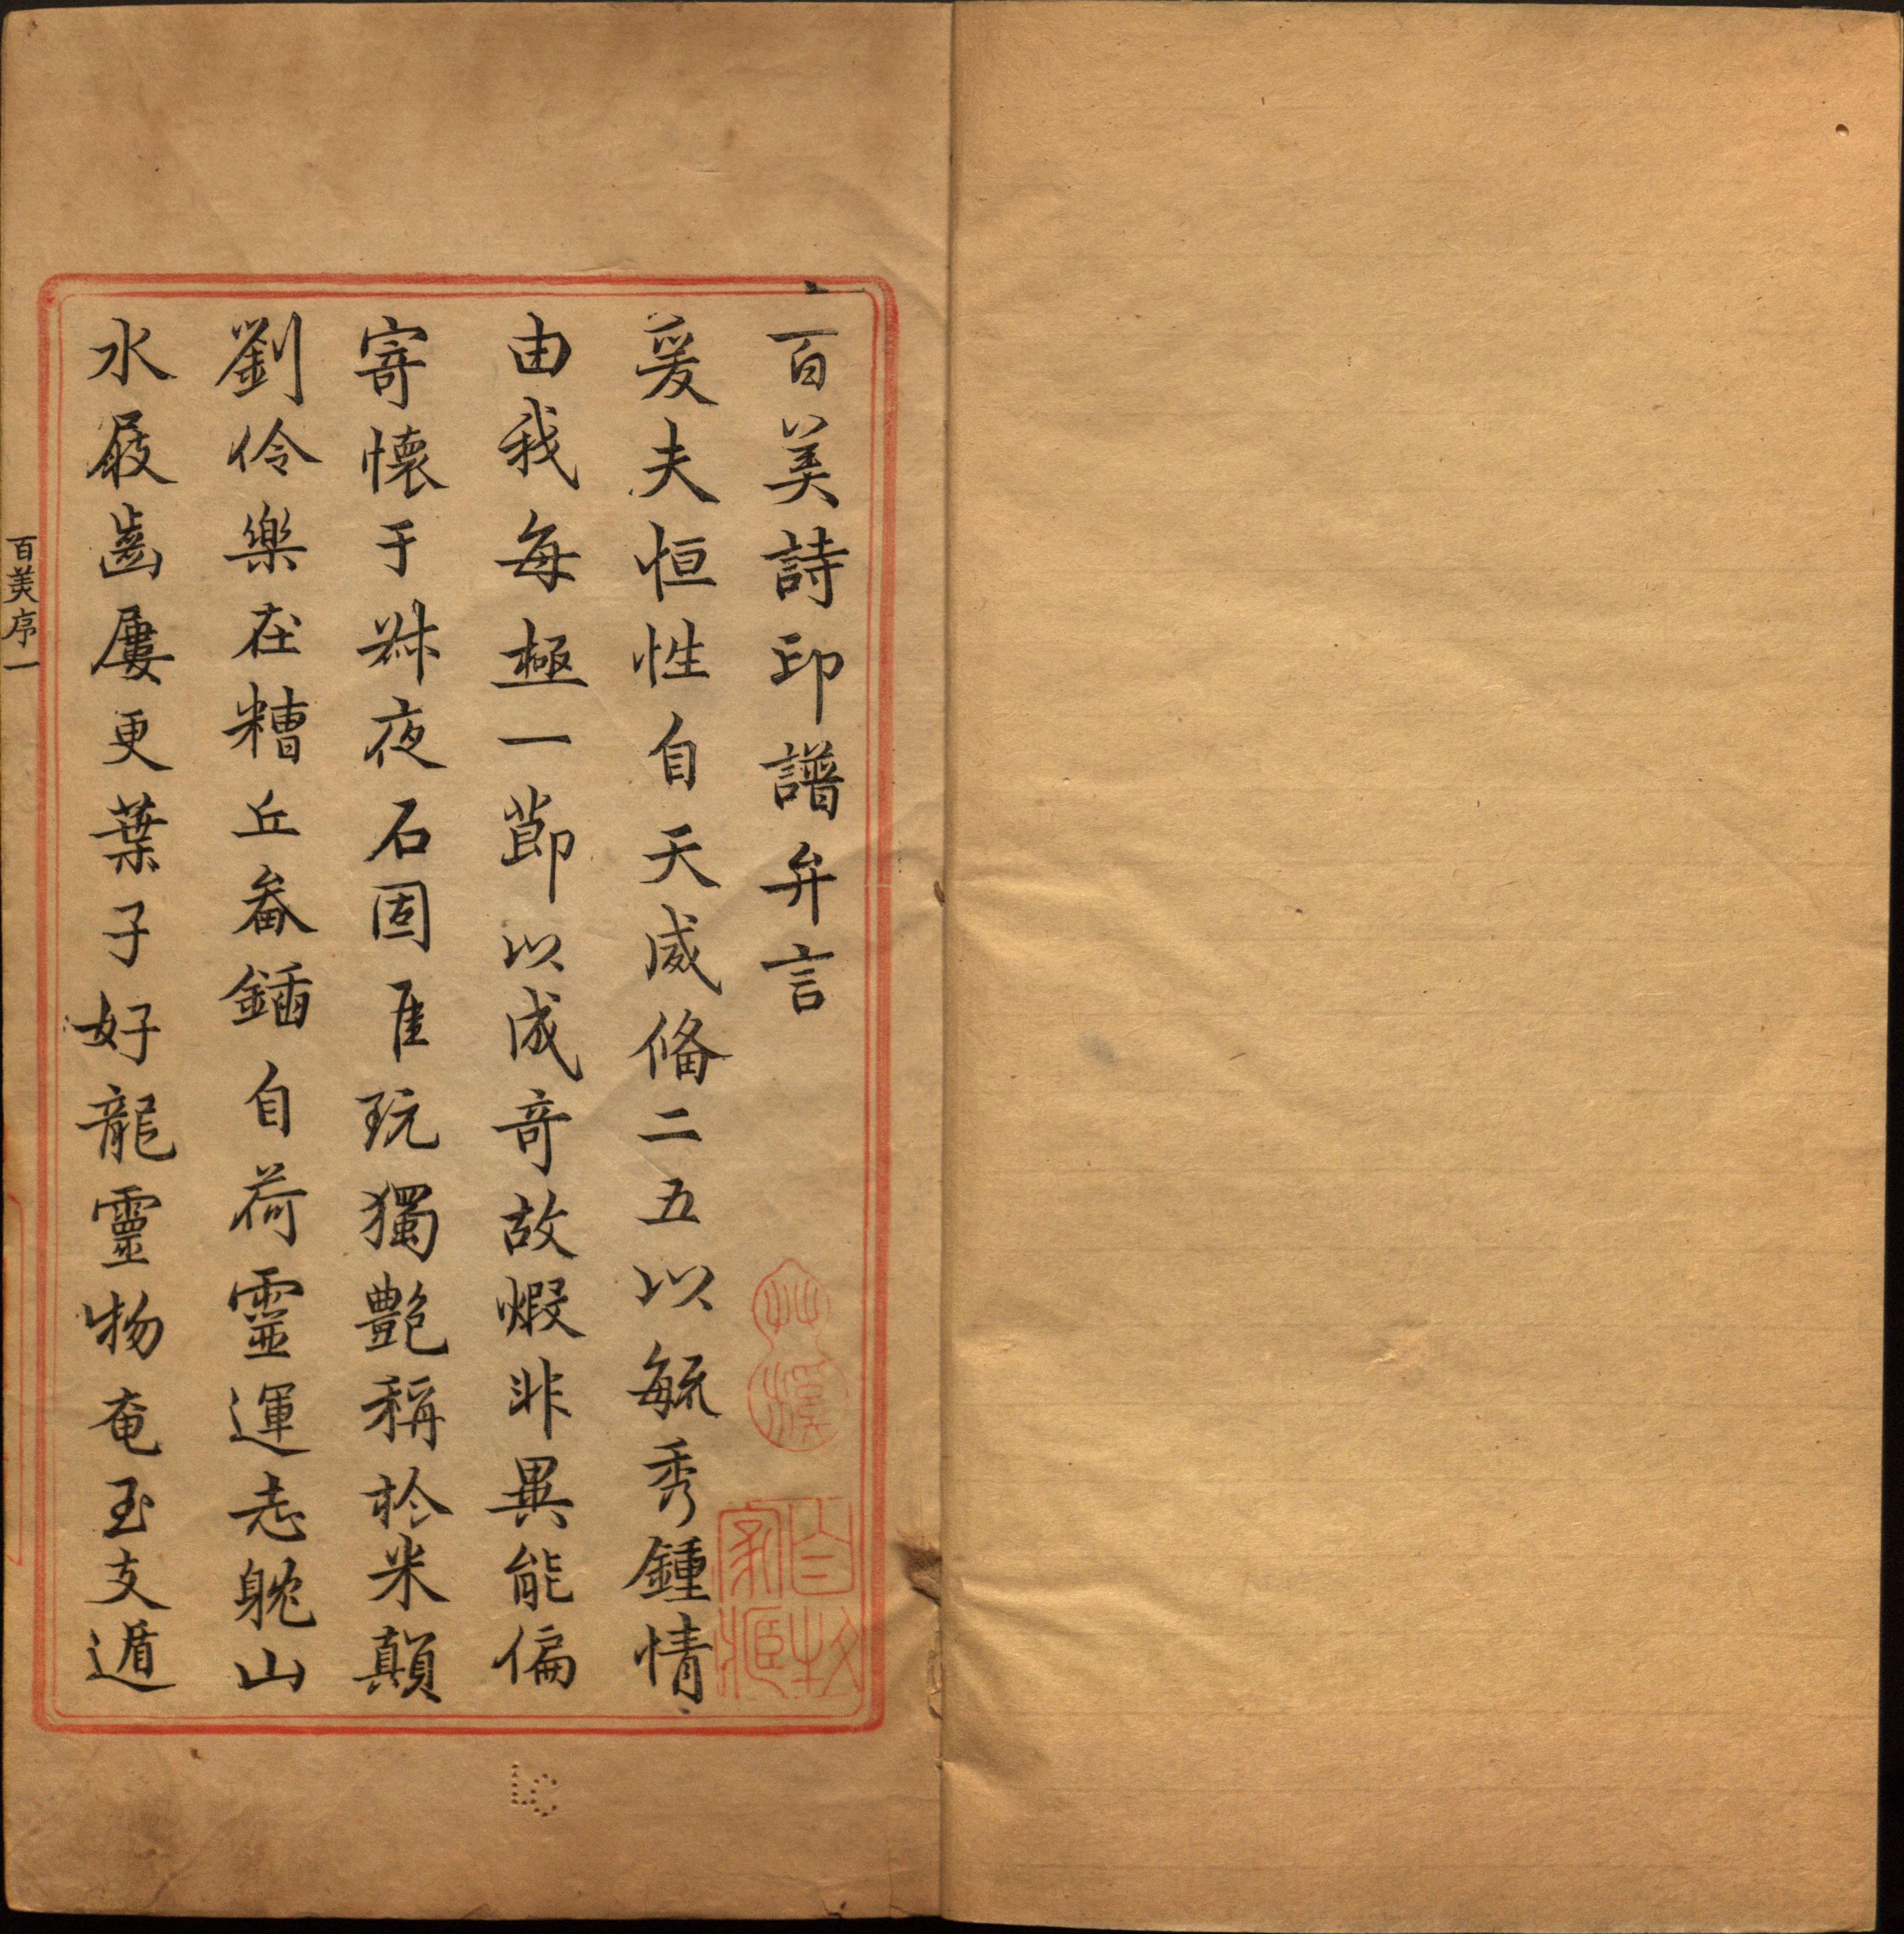 百美詩印譜弁言
爰夫恒性自天咸俻二五以毓秀鍾情
由我每極一節以成奇故嘏非異能偏
寄懷于卌夜石固隹玩獨艷稱於米顛
劉伶樂在糟丘畚鍤自荷靈運志躭山
水屐齒屢更葉子好龍靈物奄至支遁
百美序一
LC